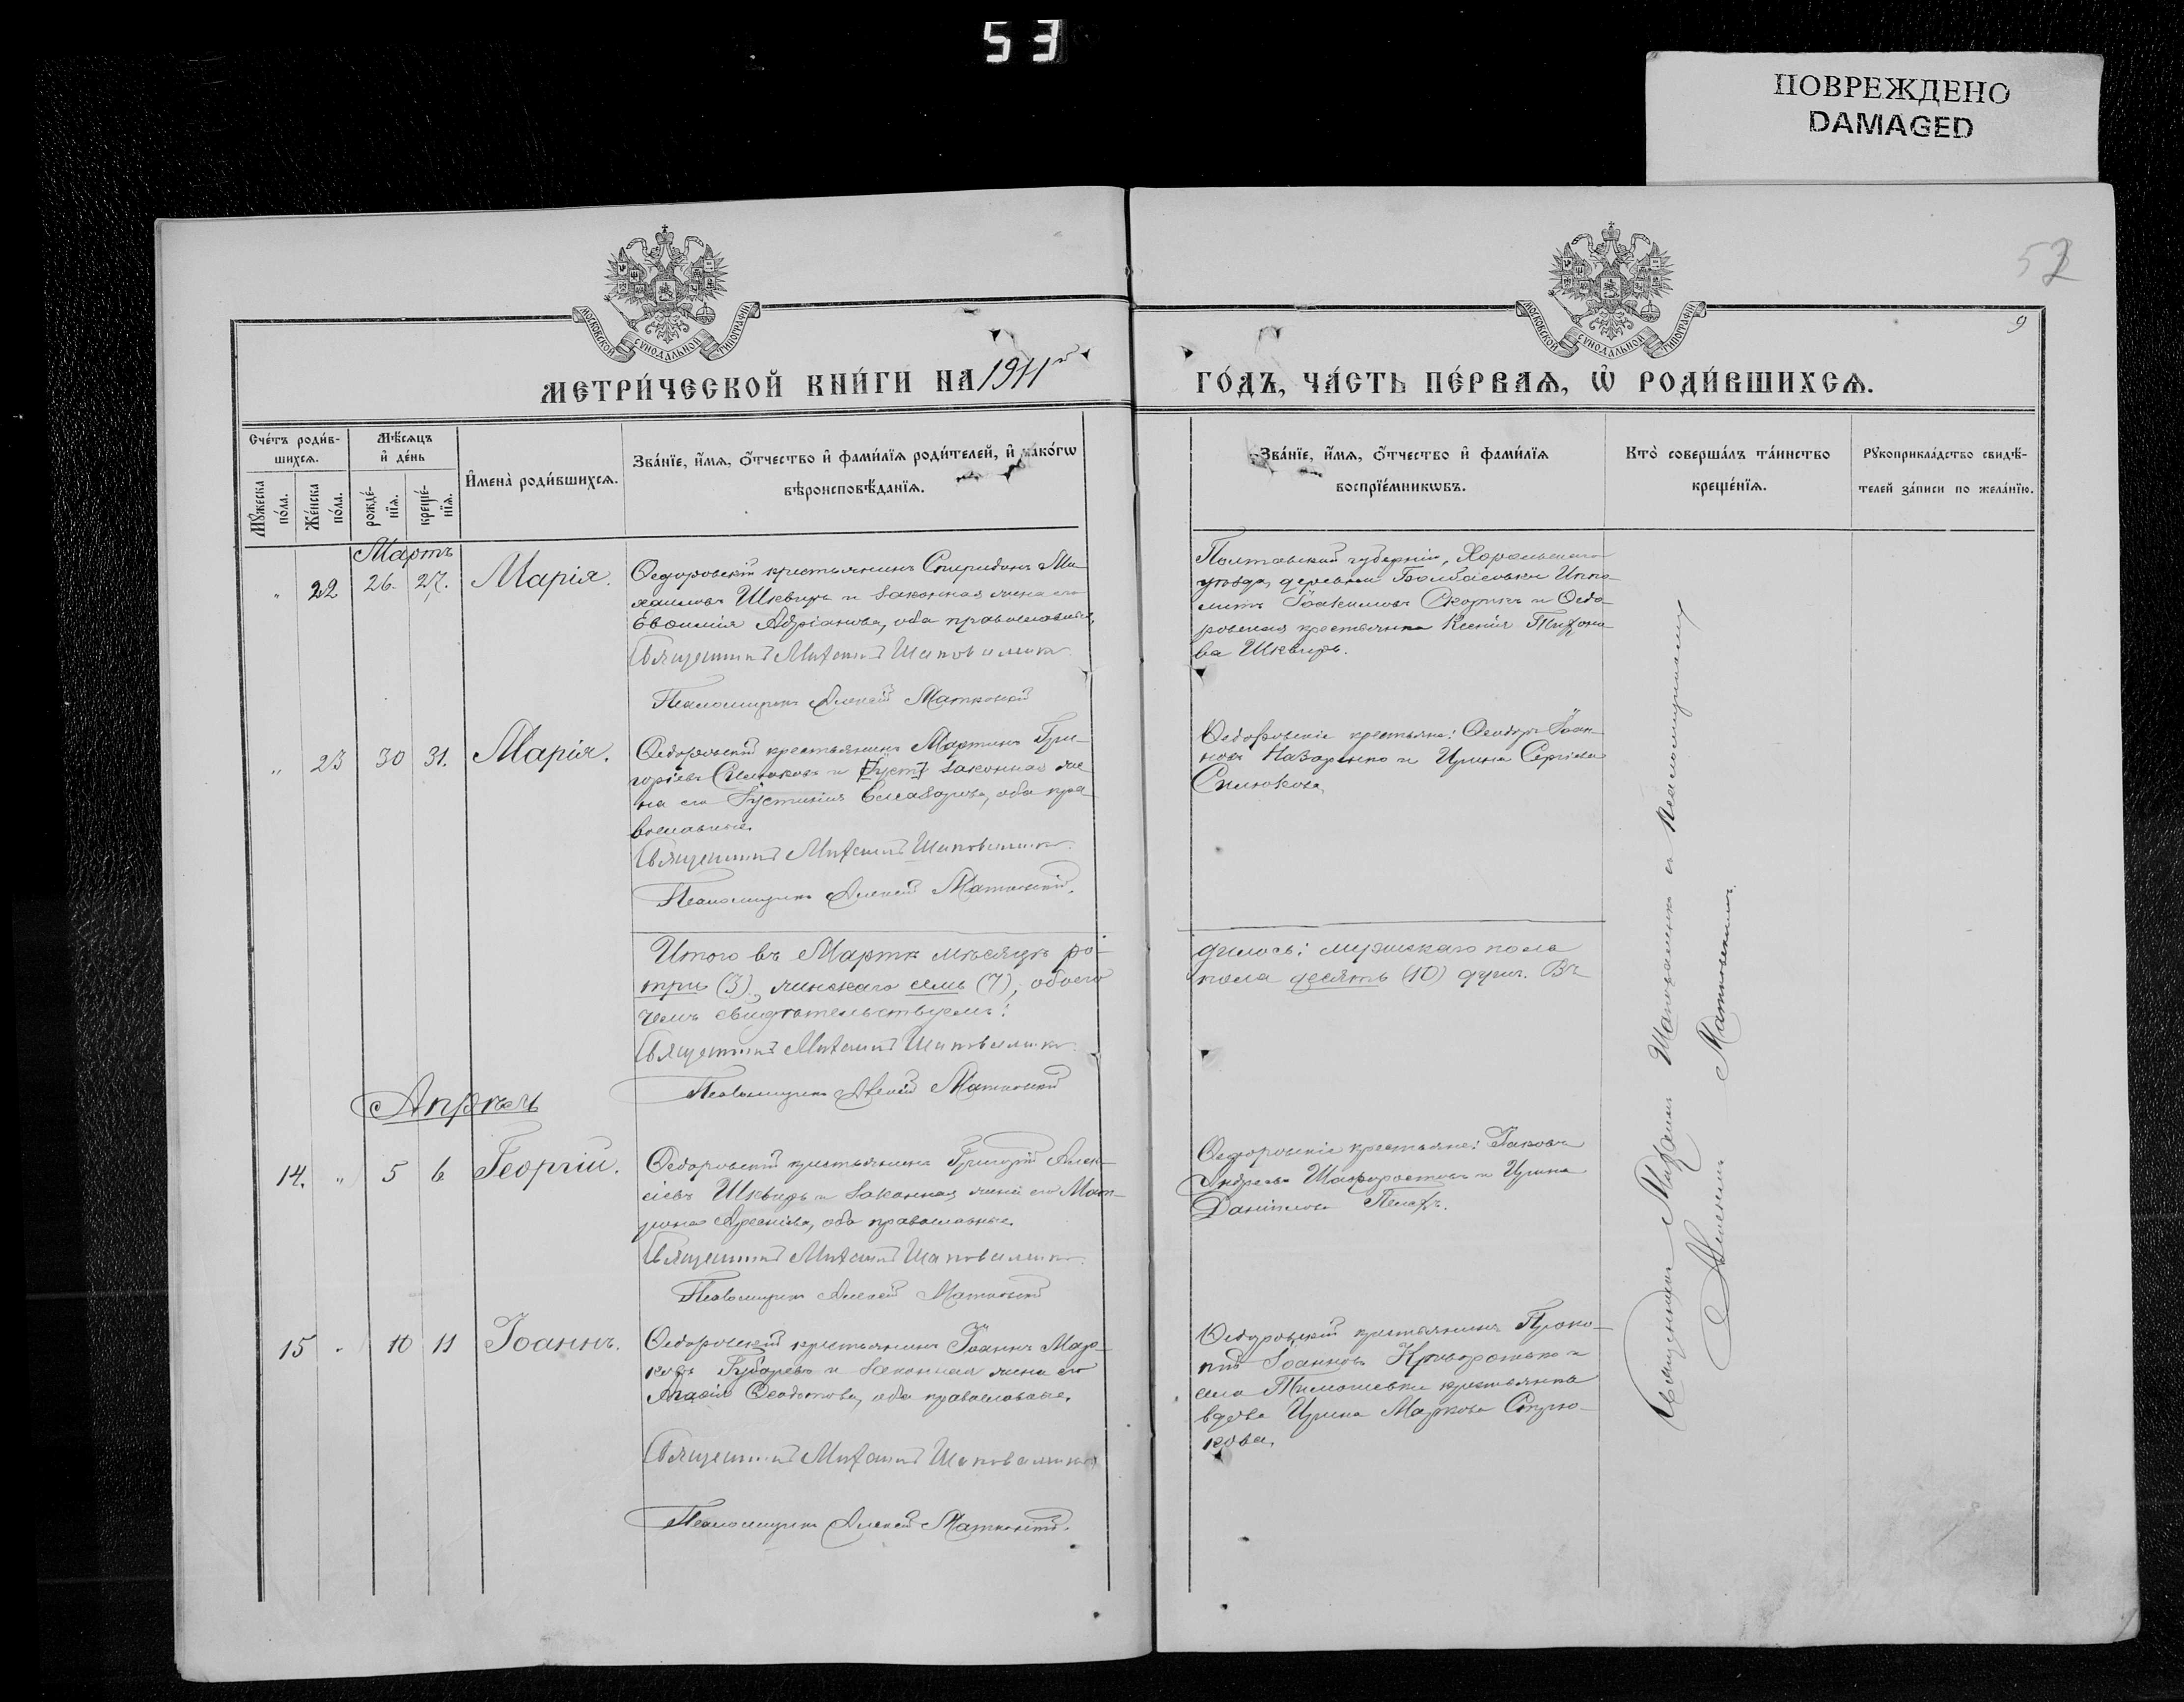 53
ПОВРЕЖДЕНО
DAMAGED
52
9
МОСКОВСКОЙ СУНОДАЛЬНОЙ ТИПОГРАФІИ
МОСКОВСКОЙ СУНОДАЛЬНОЙ ТИПОГРАФІИ
МЕТРИ́ЧЕСКОЙ КНИ́ГИ НА 1911й
ГО́ДЪ, ЧА́СТЬ ПЕ́РВАѦ, Ѡ РОДИ́ВШИХСѦ.
Сче́тъ роди́в-
шихсѧ.
Мꙋ́жеска
по́ла.
Же́нска
по́ла.
Мѣ́сѧцъ
и҆ де́нь
рожде́-
нїѧ.
креще́-
нїѧ.
И҆мена̀ роди́вшихсѧ.
Зва́нїе, и҆́мѧ, ѻ҆́тчество и҆ фами́лїѧ роди́телей, и҆ како́гѡ
вѣроисповѣ́данїѧ.
Зва́нїе, и҆́мѧ, ѻ҆́тчество и҆ фами́лїѧ
воспрїе́мникѡвъ.
Кто̀ соверша́лъ та́инство
креще́нїѧ.
Рꙋкоприкла́дство свидѣ́-
телей за́писи по жела́нїю.
Мартъ
" 22 26. 27. Марія.
Ѳедоровскій крестьянинъ Спиридонъ Ми-
хаиловъ Шквиръ и законная жена его
Евѳимія Адріанова, оба православные,
Священникъ Михаилъ Шаповаленко
Псаломщикъ Алексій Матковскій
Полтавской губерніи, Хорольскаго
уѣзда, деревни Бомбасовки Иппо-
литъ Іоакимовъ Скорикъ и Ѳедо-
ровская крестьянка Ксенія Тихоно-
ва Шквиръ.
" 23 30 31. Марія.
Ѳедоровскій крестьянинъ Мартинъ Гри-
горіевъ Силюковъ и [Іуст] законная же-
на его Іустинія Елеазарова, оба пра-
вославные.
Священникъ Михаилъ Шаповаленко
Псаломщикъ Алексій Матковскій.
Ѳедоровскіе крестьяне: Ѳеодоръ Іоан-
новъ Назаренко и Ирина Сергіева
Силюкова.
Итого въ Мартѣ мѣсяцѣ ро-
дилось: мужскаго пола
три (3), женскаго семь (7), обоего
пола десять (10) душъ. Въ
чемъ свидѣтельствуемъ:
Священникъ Михаилъ Шаповаленко
Псаломщикъ Алексій Матковскій
Апрѣль
14. " 5 6 Георгій.
Ѳедоровскій крестьянинъ Григорій Алек-
сіевъ Шквиръ и законная жена его Мат-
рона Арсеніева, оба православные.
Священникъ Михаилъ Шаповаленко
Псаломщикъ Алексій Матковскій
Ѳедоровскіе крестьяне: Іаковъ
Андреевъ Шафоростовъ и Ирина
Даниілова
15 " 10 11 Іоаннъ.
Ѳедоровскій крестьянинъ Іоаннъ Мар-
ковъ Губаревъ и законная жена его
Ѳеодотова, оба православные.
Священникъ Михаилъ Шаповаленко
Псаломщикъ Алексій Матковскій.
Ѳедоровскій крестьянинъ Проко-
пій Іоанновъ Криворотько и
села Тимошевки крестьянка
вдова Ирина Маркова
Священникъ Михаилъ Шаповаленко и Псаломщикъ
Алексій Матковскій